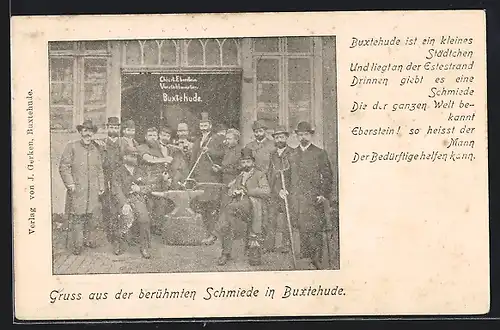 Verlag von J. Gerken, Buxtehude.
Christ. Eberstein
Buxtehude.
Buxtehude ist ein kleines
Städtchen
Und liegt an der Estestrand
Drinnen giebt es eine
Schmiede
Die der ganzen Welt be-
kannt
Eberstein! so heisst der
Mann
Der Bedürftige helfen kann.
Gruss aus der berühmten Schmiede in Buxtehude.